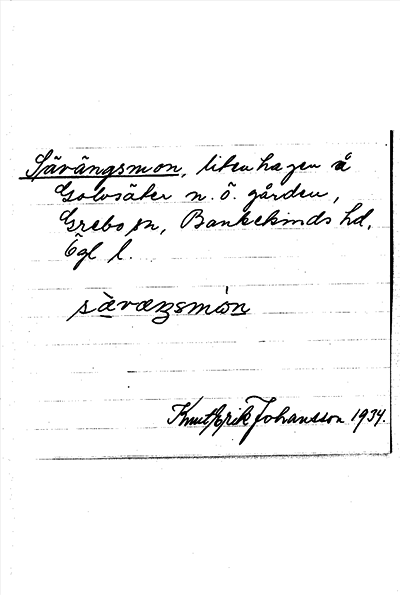 Sävängsmon, liten hagen å
Golvsäter n. ö. gården,
Grebo sn, Bankekinds hd,
Ögl l.
sàvæŋsmòn
Knut Erik Johansson 1934.